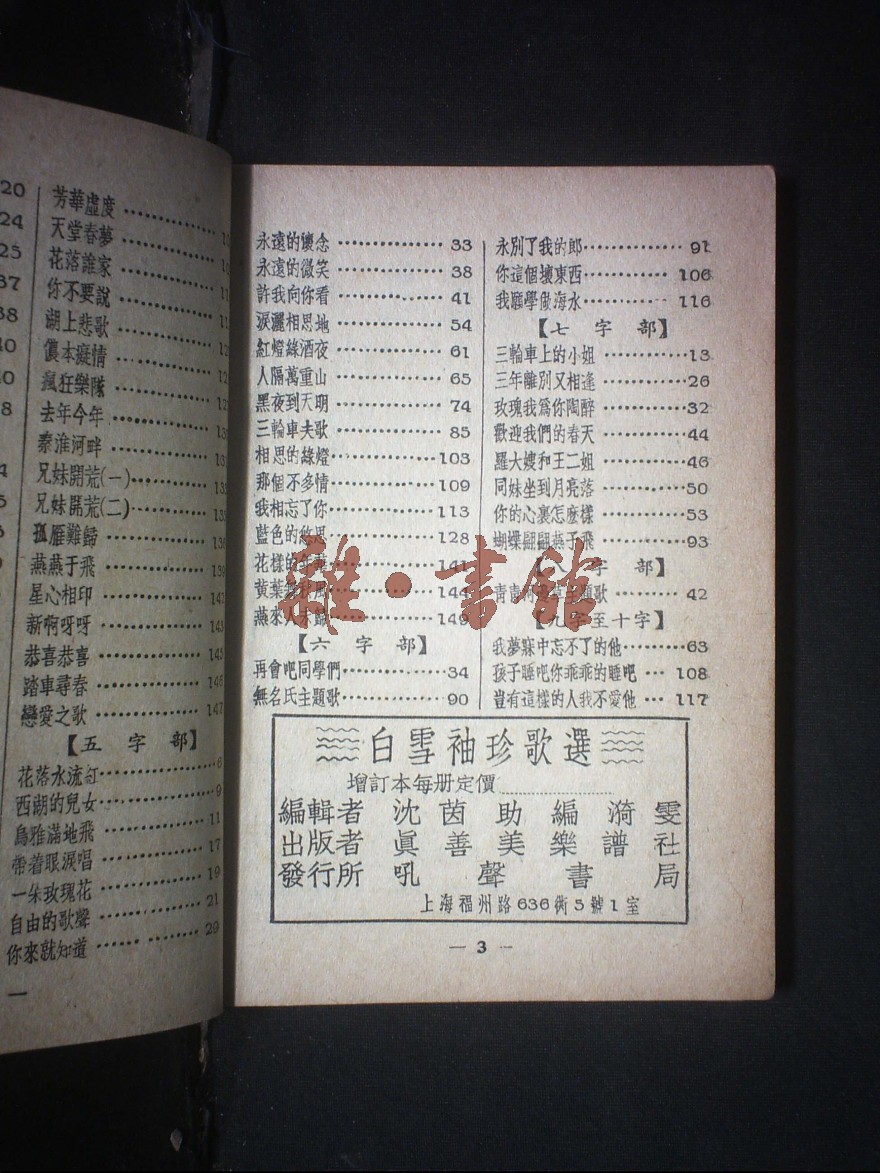 20
24
25
37
38
40
40
芳華虛度
天堂春夢
花落誰家
你不要說
湖上悲歌
儂本癡情
瘋狂樂隊
去年今年
秦淮河畔
兄妹開荒(一)
兄妹開荒(二)
孤雁難歸
燕燕于飛
星心相印
新啊呀呀
恭喜恭喜 145
踏車尋春 146
戀愛之歌 147
【五字部】
花落水流紅 6
西湖的兒女 9
烏雅滿地飛 11
帶着眼淚唱 17
一朱玫瑰花 19
自由的歌聲 21
你來就知道 29
永遠的懷念 33
永遠的微笑 38
許我向你看 41
淚灑相思地 54
紅燈綠酒夜 61
人隔萬重山 65
黑夜到天明 74
三輪車夫歌 85
相思的綠燈 103
那個不多情 109
我相忘了你 113
藍色的悠思 128
花樣的年華 141
黃葉舞秋風 144
燕來人未歸 149
【六字部】
再會吧同學們 34
無名氏主題歌 90
永別了我的郎 91
你這個壞東西 106
我願學做海水 116
【七字部】
三輪車上的小姐 13
三年離別又相逢 26
玫瑰我爲你陶醉 32
歡迎我們的春天 44
羅大嫂和王二姐 46
同妹坐到月亮落 50
你的心裏怎麼樣 53
蝴蝶翩翩燕子飛 93
【八字部】
青青河邊草主題歌 42
【九字至十字】
我夢寐中忘不了的他 63
孩子睡吧你乖乖的睡吧 108
豈有這樣的人我不愛他 117
白雪袖珍歌選
增訂本每册定價
編輯者 沈茵助編漪雯
出版者 眞善美樂譜社
發行所 吼聲書局
上海福州路636衖5號1室
— 3 —
雜·書館